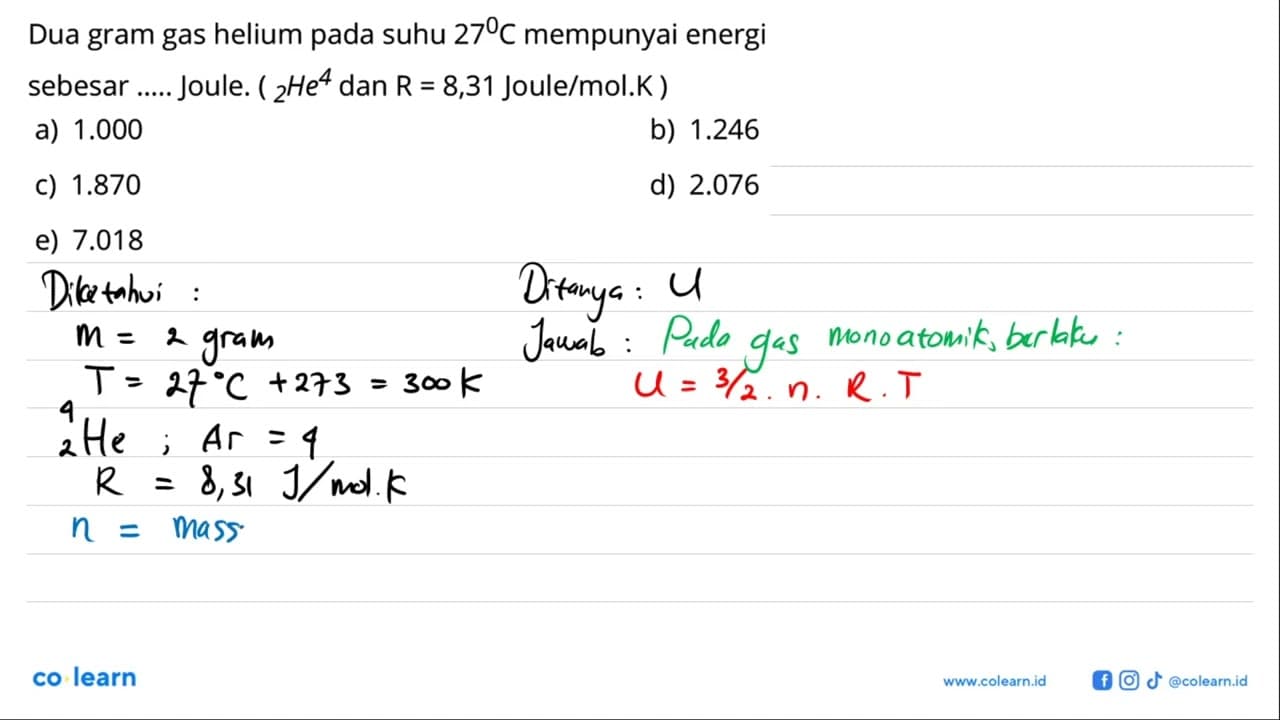 Dua gram gas helium pada suhu 27⁰C mempunyai energi
sebesar ..... Joule. ( ₂He⁴ dan R = 8,31 Joule/mol.K )
a) 1.000
b) 1.246
c) 1.870
d) 2.076
e) 7.018
Diketahui :
m = 2 gram
T = 27°C + 273 = 300 K
⁴₂He ; Ar = 4
R = 8,31 J/mol.K
n = mass
Ditanya : U
Jawab : Pada gas monoatomik, berlaku :
U = 3/2 . n . R . T
co learn
www.colearn.id
@colearn.id